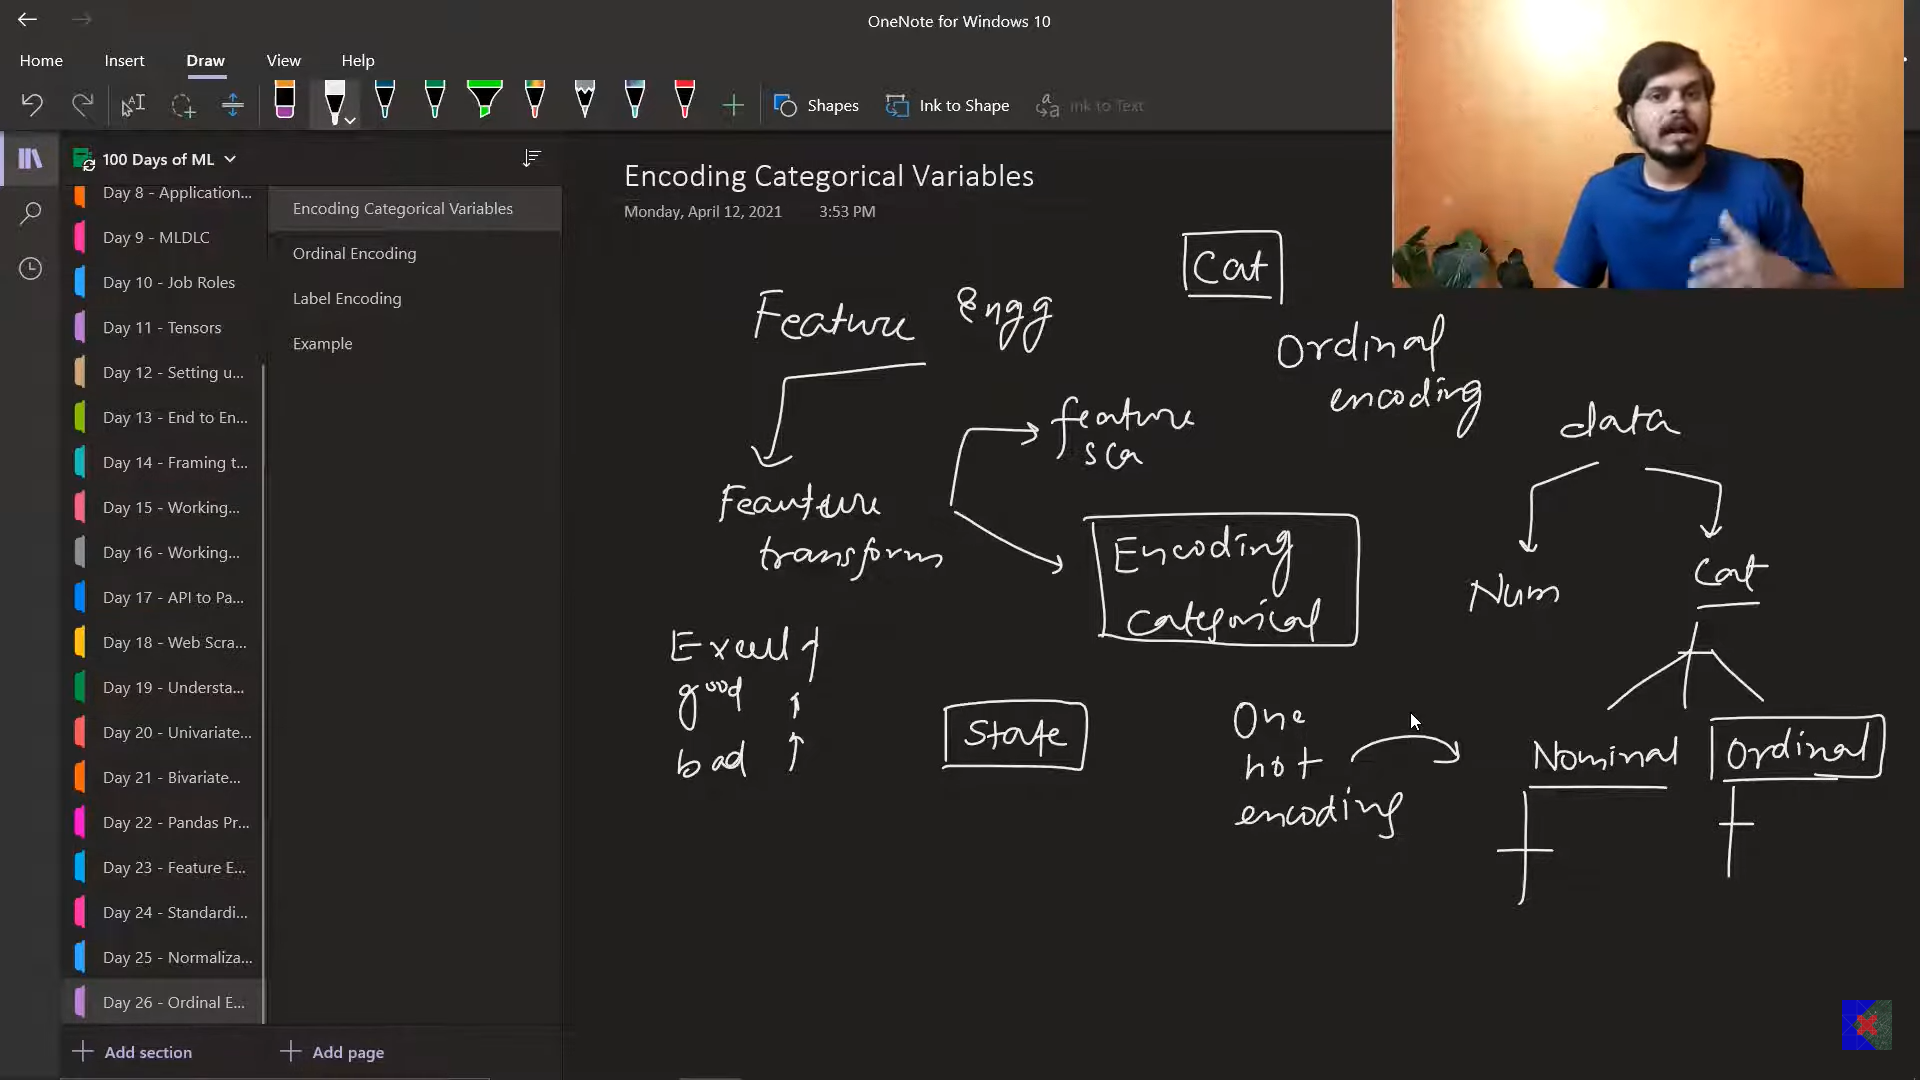 OneNote for Windows 10
Home Insert Draw View Help
Shapes Ink to Shape Ink to Text
100 Days of ML
Day 8 - Application...
Day 9 - MLDLC
Day 10 - Job Roles
Day 11 - Tensors
Day 12 - Setting u...
Day 13 - End to En...
Day 14 - Framing t...
Day 15 - Working...
Day 16 - Working...
Day 17 - API to Pa...
Day 18 - Web Scra...
Day 19 - Understa...
Day 20 - Univariate...
Day 21 - Bivariate...
Day 22 - Pandas Pr...
Day 23 - Feature E...
Day 24 - Standardi...
Day 25 - Normaliza...
Day 26 - Ordinal E...
Add section
Encoding Categorical Variables
Ordinal Encoding
Label Encoding
Example
Add page
Encoding Categorical Variables
Monday, April 12, 2021 3:53 PM
Cat
Feature Engg
Ordinal
encoding
feature
sca
data
Feauture
transform
Encoding
Categorical
Num
Cat
Excell
good
bad
State
One
hot
encoding
Nominal
Ordinal